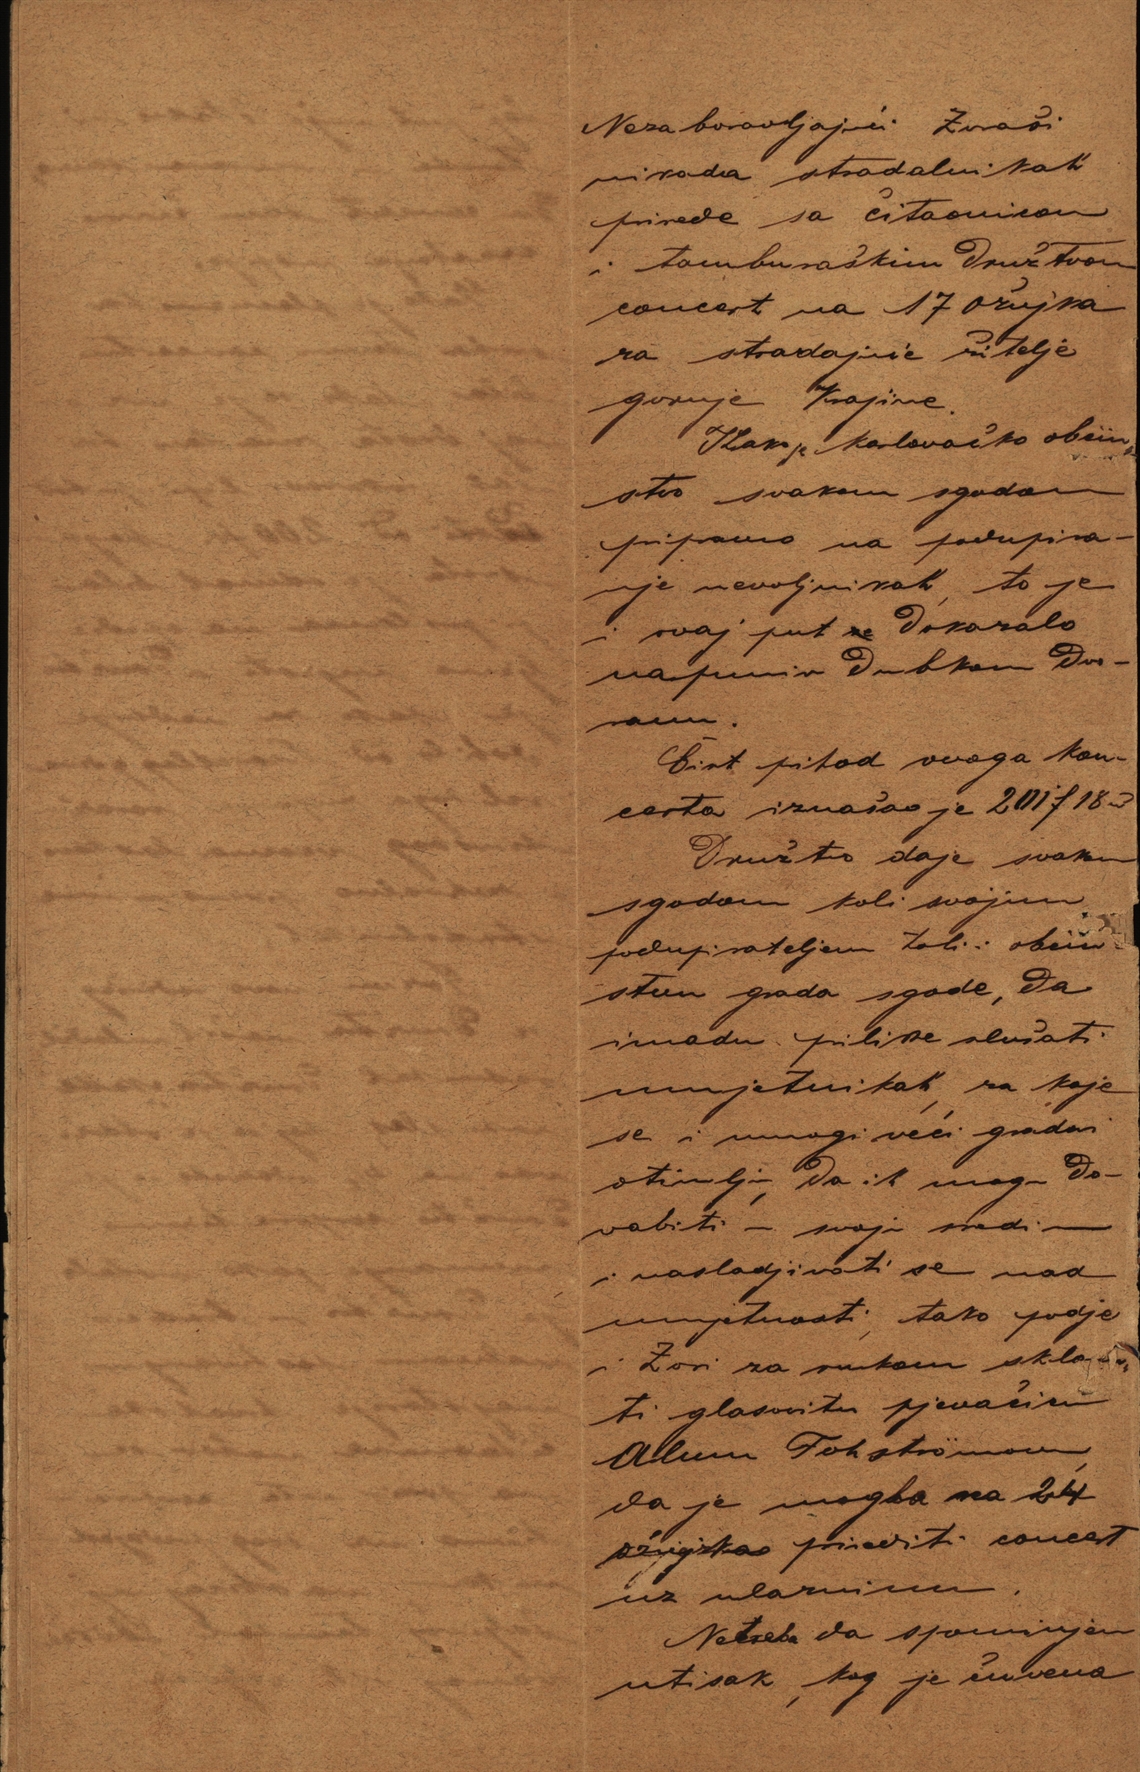 Nezaboravljajući Zoraši
nikada stradalnikah
prirede sa čitaonicom
i tamburaškim družtvom
concert na 17 ožujka
za stradajuće žitelje
gornje Krajine.
Kako je karlovačko obćin-
stvo svakom sgodom
pripravno na podupira-
nje nevoljnikah, to je
i ovaj put dokazalo
napuniv dubkom dvo-
ranu.
Čist prihod ovoga kon-
certa iznašao je 201 f 18
Družtvo daje svakom
sgodom koli svojim
podupirateljem toli i obćin-
stvu grada sgode, da
imadu prilike slušati
umjetnikah, za koje
se i mnogi veći gradovi
otimlju, da ih mogu do-
vabiti u svoju sredinu
i nasladjivati se nad
umjetnosti, tako podje
i Zori za rukom sklonu-
ti glasovitu pjevačicu
Almu Fohströmovu,
da je mogla na 24
ožujka prirediti concert
uz ulazninu.
Netreba da spominjem
utisak, kog je čuvena